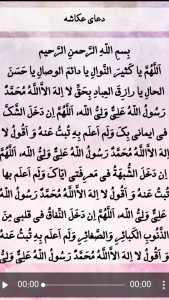 دعای عکاشه
بِسمِ اللّٰهِ الرَّحمنِ الرَّحيمِ
اَللّٰهُمَّ يا كَثيرَ النَّوالِ يا دائمَ الوِصالِ يا حَسَنَ
الحالِ يا رازِقَ العِبادِ بِحَقِّ لا اِلهَ الاَّاللّٰهُ مُحَمَّدٌ
رَسُولُ اللّٰهِ عَلِيٌّ وَلِيُّ اللّٰه، اَللّٰهُمَّ اِن دَخَلَ الشَّكُّ
في ايماني بِكَ وَلَم اَعلَم بِهِ تُبتُ عَنهُ وَ اَقُولُ لا
اِلهَ الاَّاللّٰهُ مُحَمَّدٌ رَسُولُ اللّٰهِ عَلِيٌّ وَلِيُّ اللّٰهِ، اَللّٰهُمَّ
اِن دَخَلَ الشُّبهَةُ في مَعرِفَتي اِيّاكَ وَلَم اَعلَم بِها
تُبتُ عَنهُ وَ اَقُولُ لا اِلهَ الاَّاللّٰهُ مُحَمَّدٌ رَسُولُ اللّٰهِ
عَلِيٌّ وَلِيُّ اللّٰهِ، اَللّٰهُمَّ اِن دَخَلَ النِّفاقُ في قَلبي مِنَ
الذُّنُوبِ الكَبائِرِ وَالصَّغائِرِ وَلَم اَعلَم بِهِ تُبتُ عَنهُ
وَاَقُولُ لا اِلهَ الاَّاللّٰهُ مُحَمَّدٌ رَسُولُ اللّٰهِ عَلِيٌّ
00:00 00:00